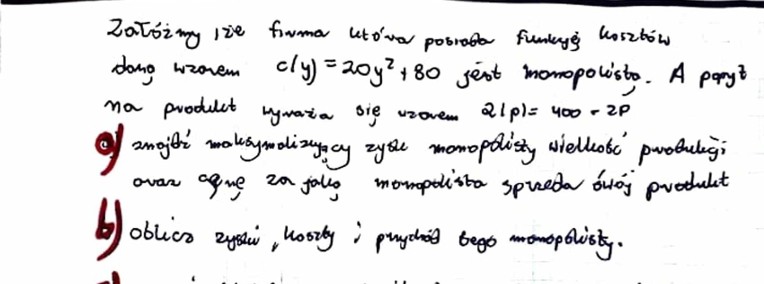 Załóżmy że firma która posiada funkcję kosztów
daną wzorem c(y) = 20y² + 80 jest monopolistą. A popyt
na produkt wyraża się wzorem Q(p) = 400 - 2P
a) znajdź maksymalizujący zysk monopolisty wielkość produkcji
oraz cenę za jaką monopolista sprzeda swój produkt
b) oblicz zyski, koszty i przychód tego monopolisty.